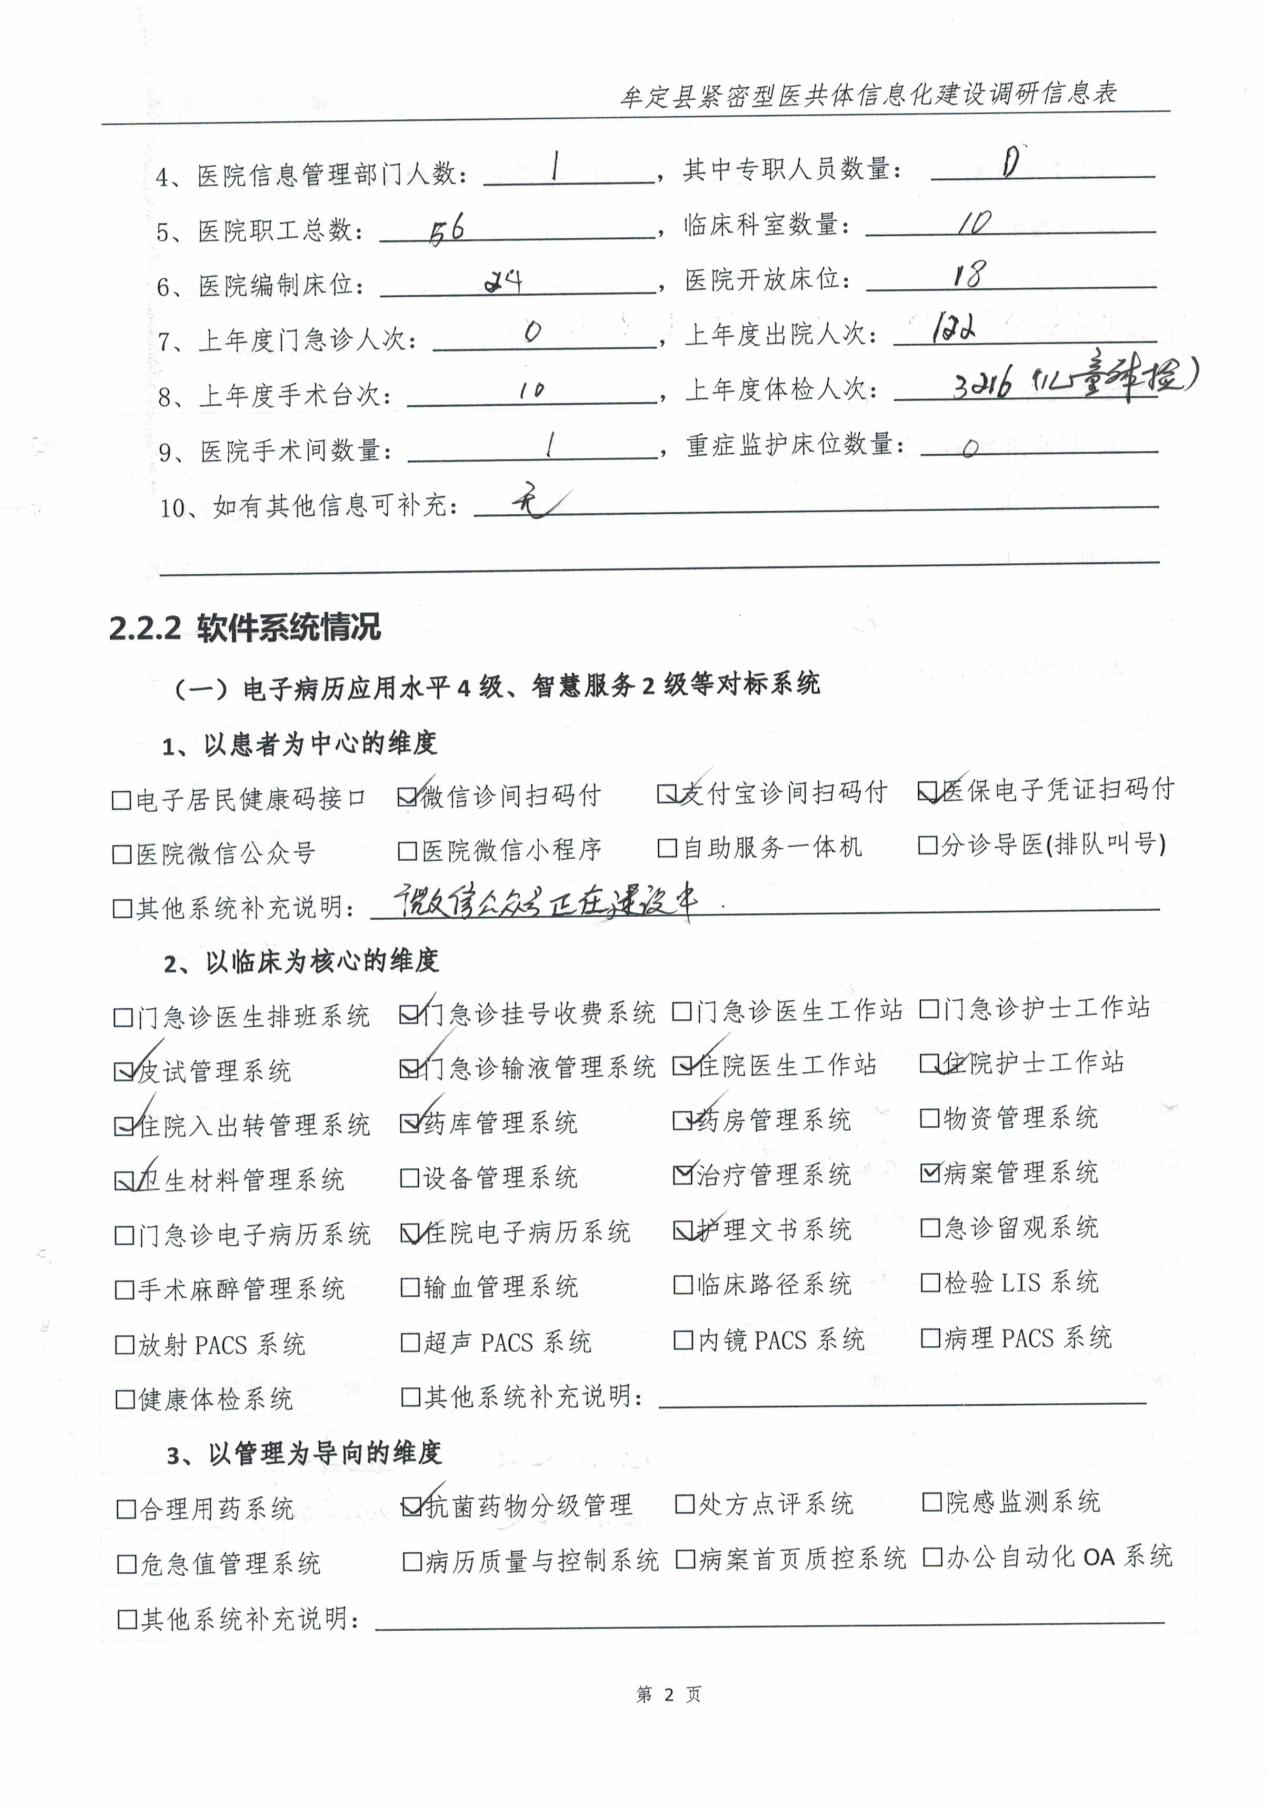 牟定县紧密型医共体信息化建设调研信息表
4、医院信息管理部门人数：1，其中专职人员数量：0
5、医院职工总数：56，临床科室数量：10
6、医院编制床位：24，医院开放床位：18
7、上年度门急诊人次：0，上年度出院人次：122
8、上年度手术台次：10，上年度体检人次：3216（儿童体检）
9、医院手术间数量：1，重症监护床位数量：0
10、如有其他信息可补充：无
2.2.2 软件系统情况
（一）电子病历应用水平 4 级、智慧服务 2 级等对标系统
1、以患者为中心的维度
□电子居民健康码接口 ☑微信诊间扫码付 ☑支付宝诊间扫码付 ☑医保电子凭证扫码付
□医院微信公众号 □医院微信小程序 □自助服务一体机 □分诊导医(排队叫号)
□其他系统补充说明：微信公众号正在建设中.
2、以临床为核心的维度
□门急诊医生排班系统 ☑门急诊挂号收费系统 □门急诊医生工作站 □门急诊护士工作站
☑皮试管理系统 ☑门急诊输液管理系统 ☑住院医生工作站 ☑住院护士工作站
☑住院入出转管理系统 ☑药库管理系统 ☑药房管理系统 □物资管理系统
☑卫生材料管理系统 □设备管理系统 ☑治疗管理系统 ☑病案管理系统
□门急诊电子病历系统 ☑住院电子病历系统 ☑护理文书系统 □急诊留观系统
□手术麻醉管理系统 □输血管理系统 □临床路径系统 □检验 LIS 系统
□放射 PACS 系统 □超声 PACS 系统 □内镜 PACS 系统 □病理 PACS 系统
□健康体检系统 □其他系统补充说明：
3、以管理为导向的维度
□合理用药系统 ☑抗菌药物分级管理 □处方点评系统 □院感监测系统
□危急值管理系统 □病历质量与控制系统 □病案首页质控系统 □办公自动化 OA 系统
□其他系统补充说明：
第 2 页